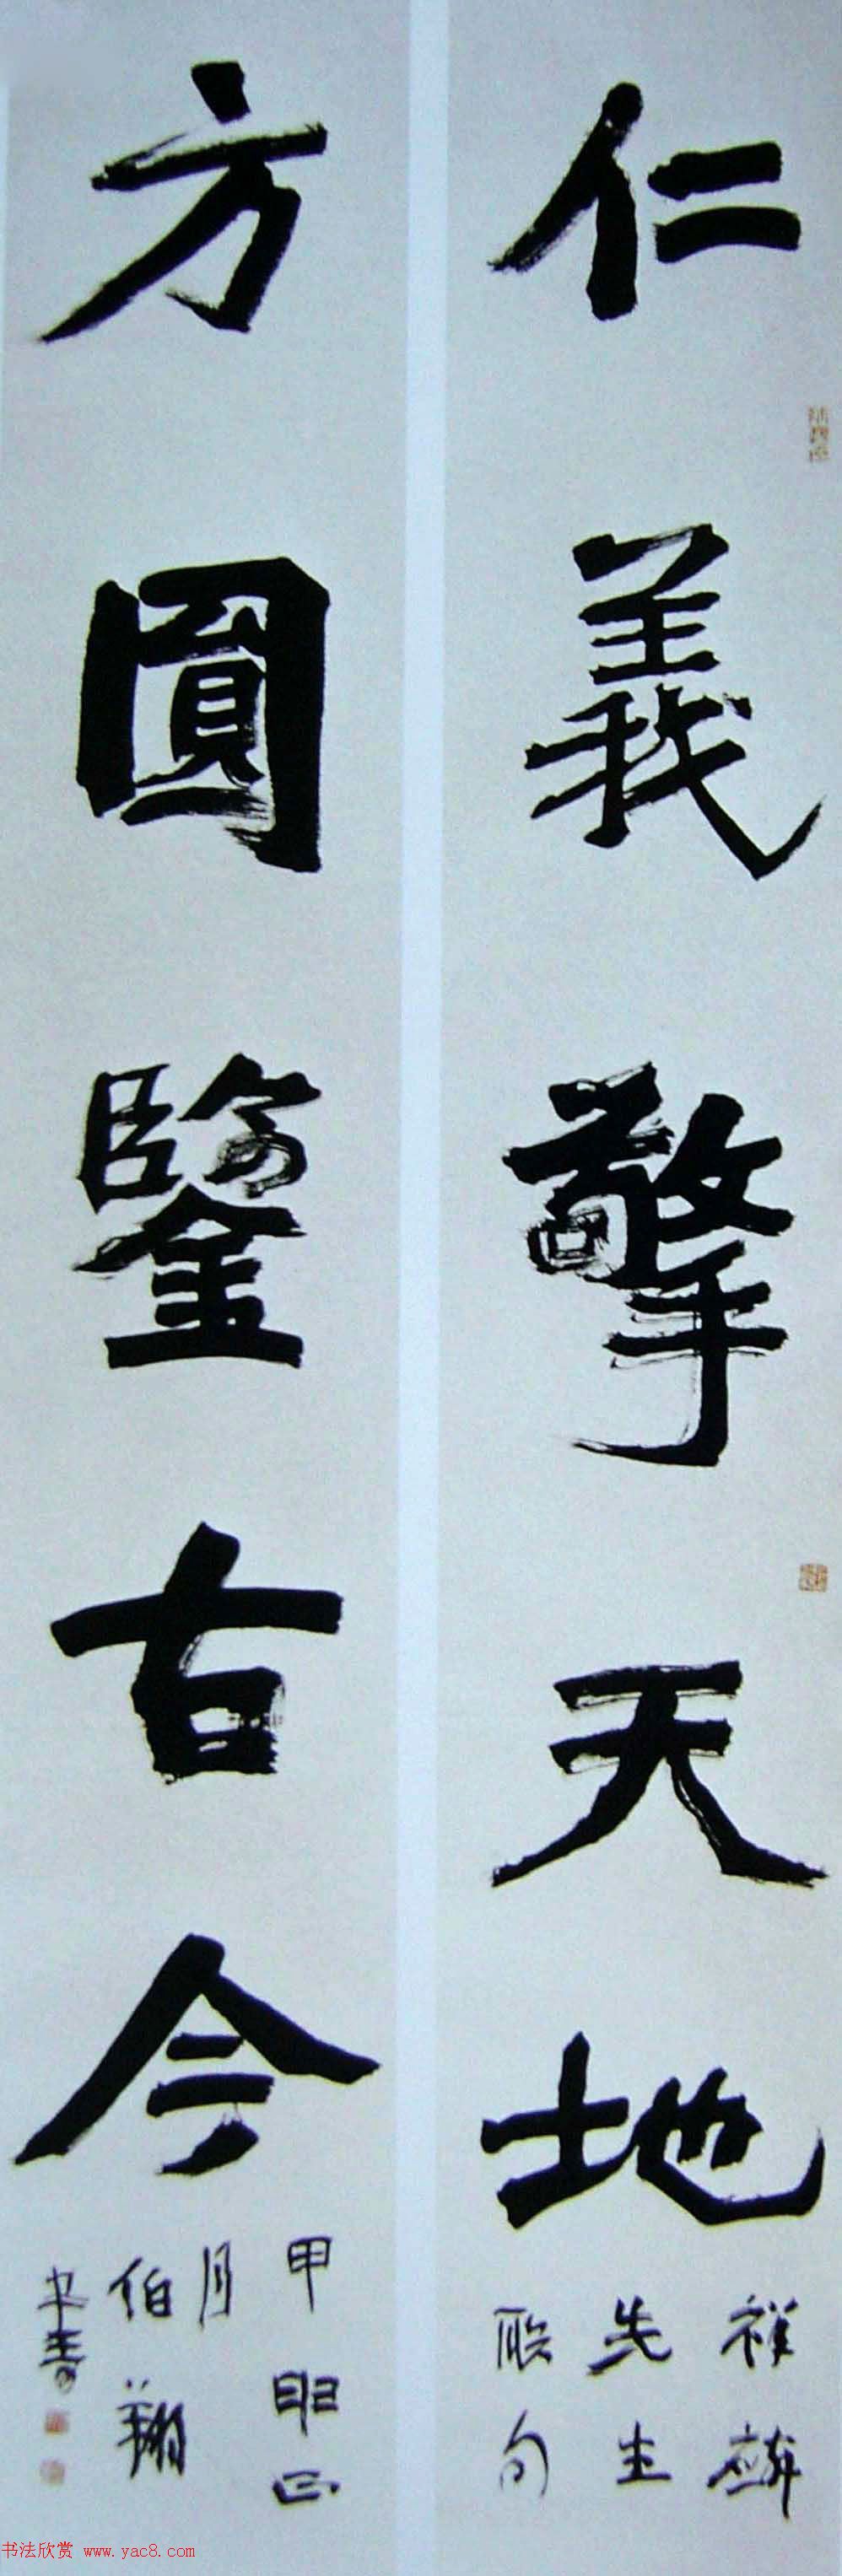 仁義擎天地
祥麟
先生
联句
方圓鑒古今
甲申正
月
伯翔
書
书法欣赏 www.yac8.com